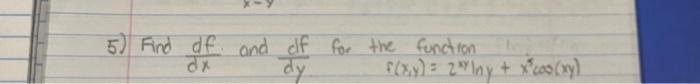 x-y
5) Find df/dx and df/dy for the function
f(x,y) = 2^xy ln y + x^5 cos(xy)